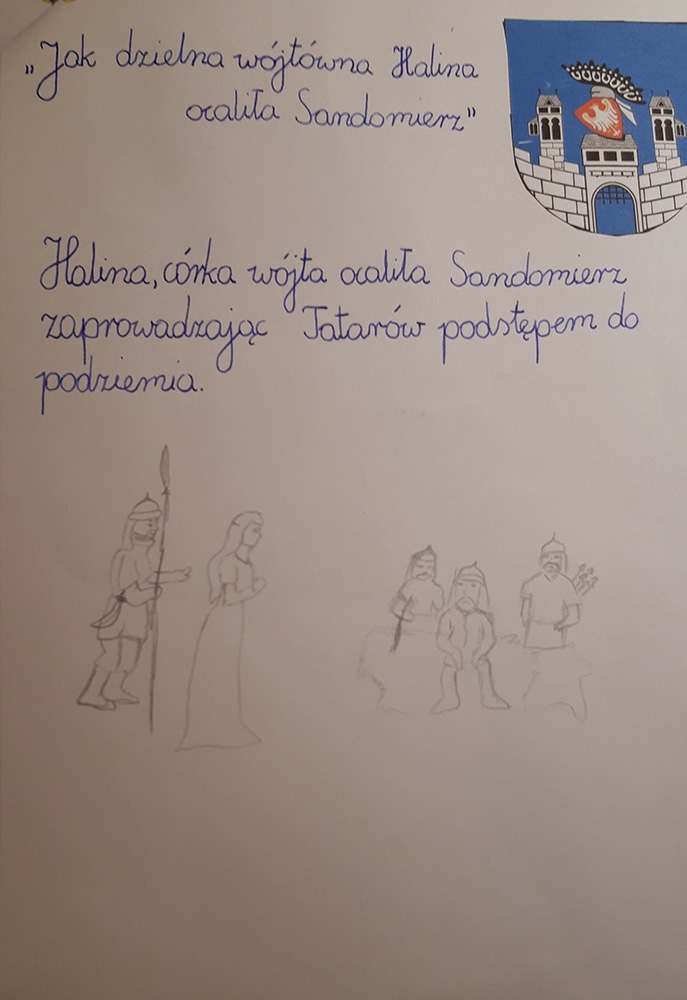 „Jak dzielna wójtówna Halina
ocaliła Sandomierz”
Halina, córka wójta ocaliła Sandomierz
zaprowadzając Tatarów podstępem do
podziemia.